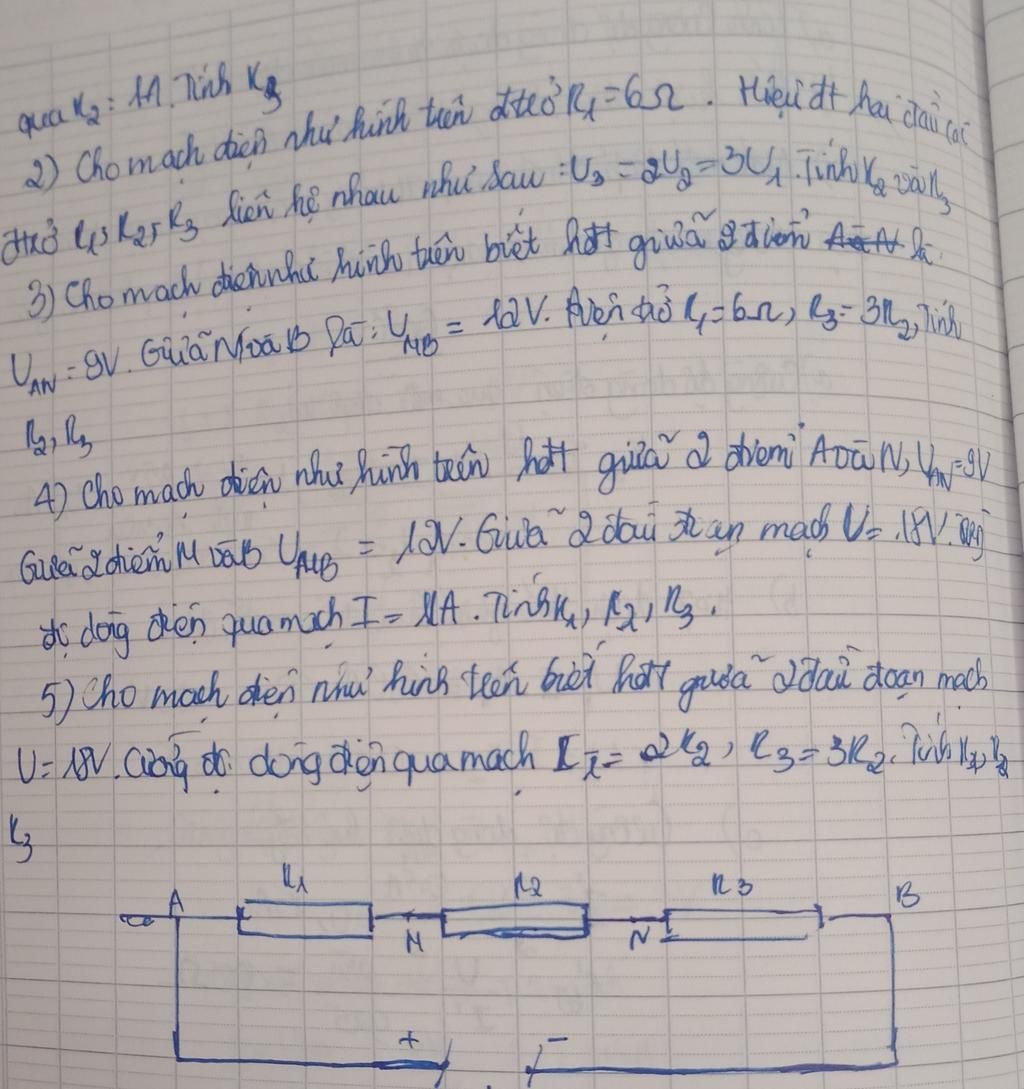 qua R2 = 1A. Tính R3
2) Cho mạch điện như hình trên đtrở R1 = 6Ω. Hiệu đt hai đầu các
đtrở R1, R2, R3 liên hệ nhau như sau: U3 = 2U2 = 3U1. Tính R2 và R3
3) Cho mạch điện như hình trên biết hđt giữa 2 điểm là
UAN = 9V. Giữa M và B là: UMB = 12V. Điện trở R1 = 6Ω, R3 = 3R2, Tính
R2, R3
4) Cho mạch điện như hình trên hđt giữa 2 điểm A và N, UAN = 9V
Giữa 2 điểm M và B UMB = 12V. Giữa 2 đầu đoạn mạch U = 18V.
độ dòng điện qua mạch I = 1A. Tính R1, R2, R3.
5) Cho mạch điện như hình trên biết hđt giữa 2 đầu đoạn mạch
U = 18V. Cường độ dòng điện qua mạch = 2R2, R3 = 3R2. Tính R1, R2
R3
A R1 M R2 N R3 B
+ -